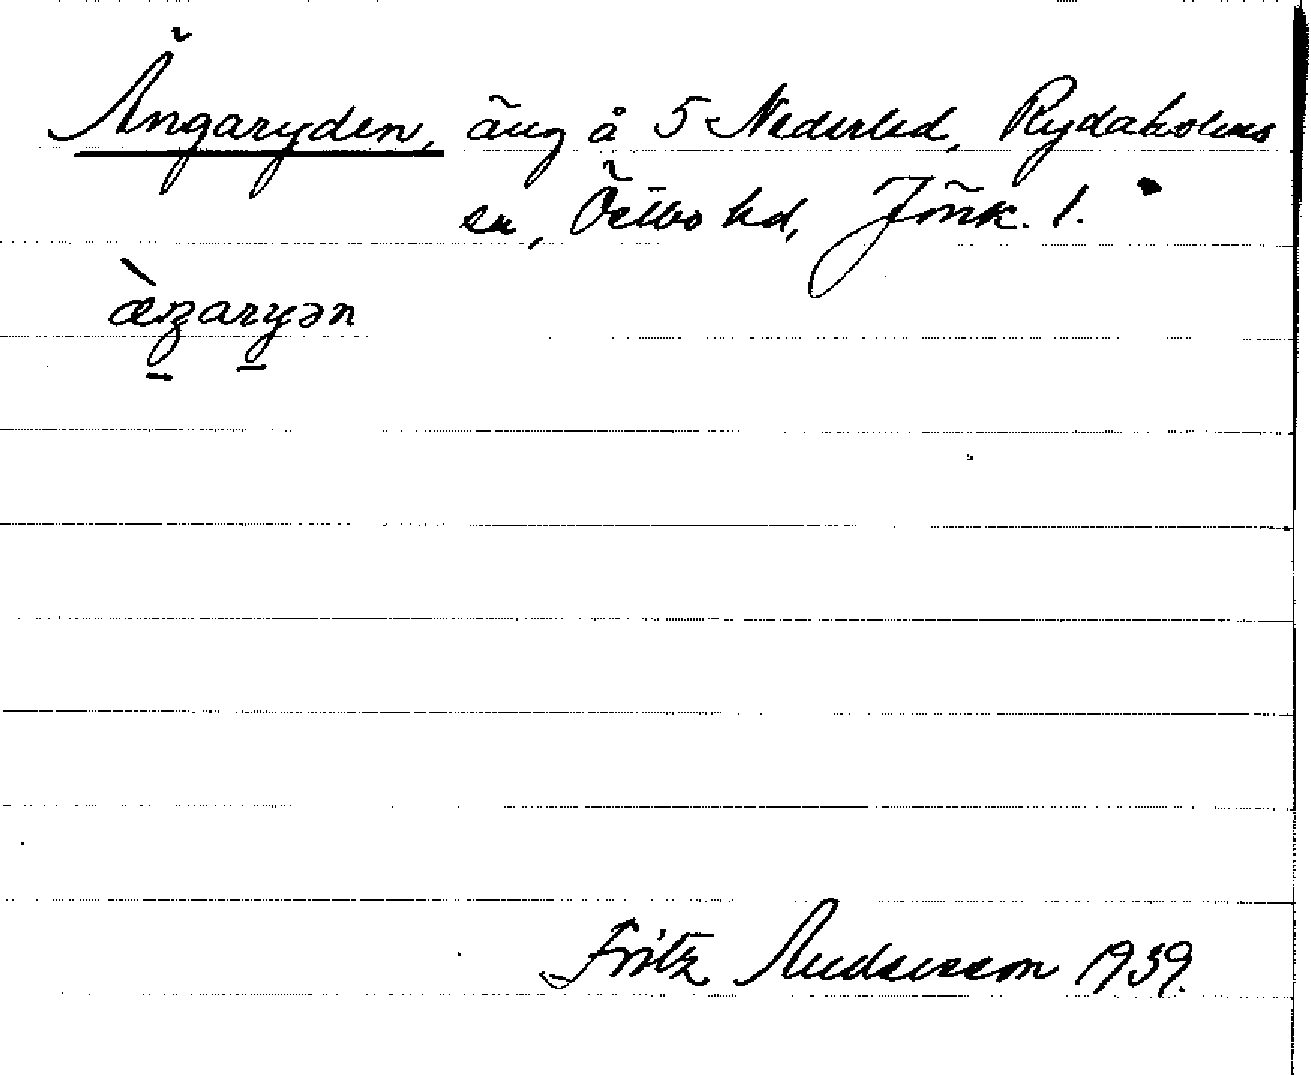 Ängaryden, äng å 5 Nederled, Rydaholms
sn, Östbo hd, Jönk. l.
Fritz Andersson 1939.